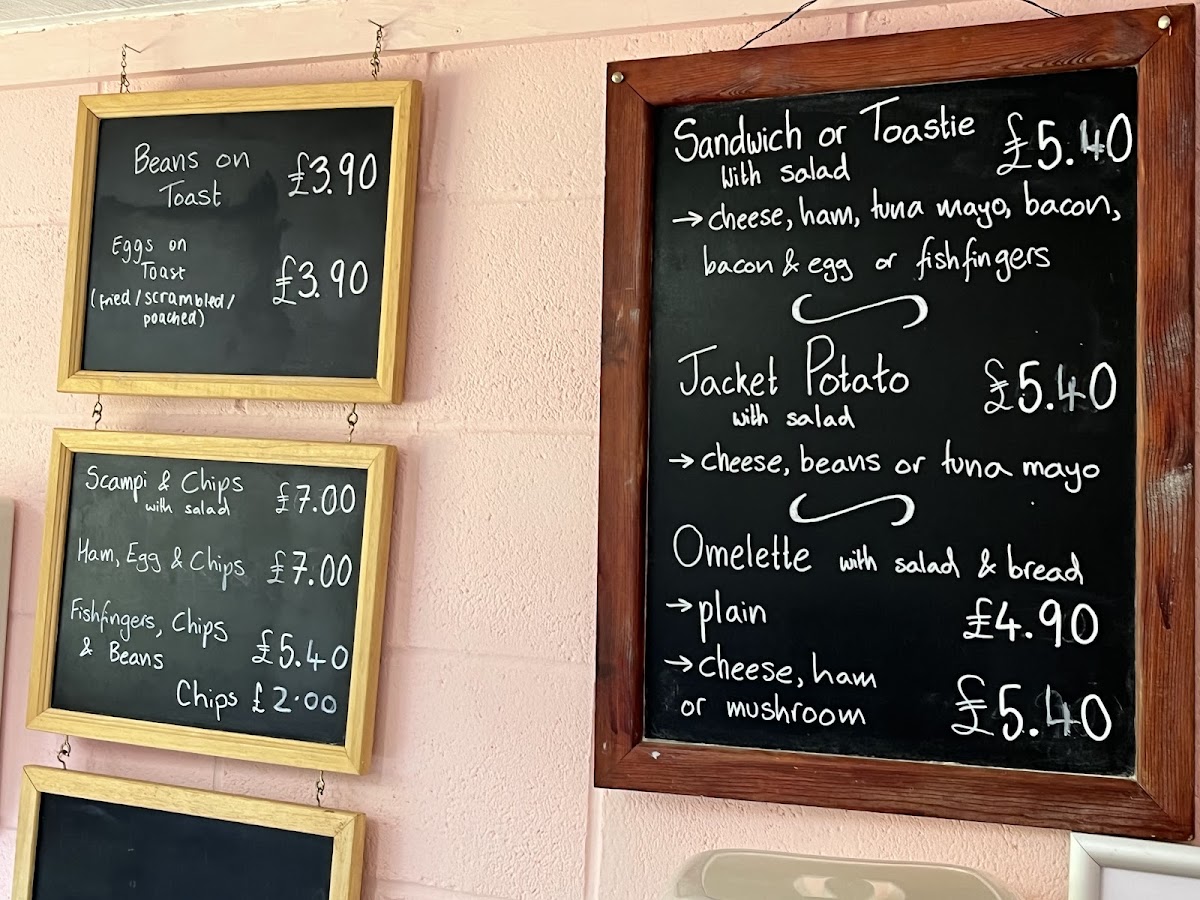 Beans on £3.90
Toast
Eggs on
Toast £3.90
(fried/scrambled/
poached)
Scampi & Chips £7.00
with salad
Ham, Egg & Chips £7.00
Fishfingers, Chips
& Beans £5.40
Chips £2.00
Sandwich or Toastie £5.40
With salad
→ cheese, ham, tuna mayo, bacon,
bacon & egg or fishfingers
Jacket Potato £5.40
with salad
→ cheese, beans or tuna mayo
Omelette with salad & bread
→ plain £4.90
→ cheese, ham
or mushroom £5.40